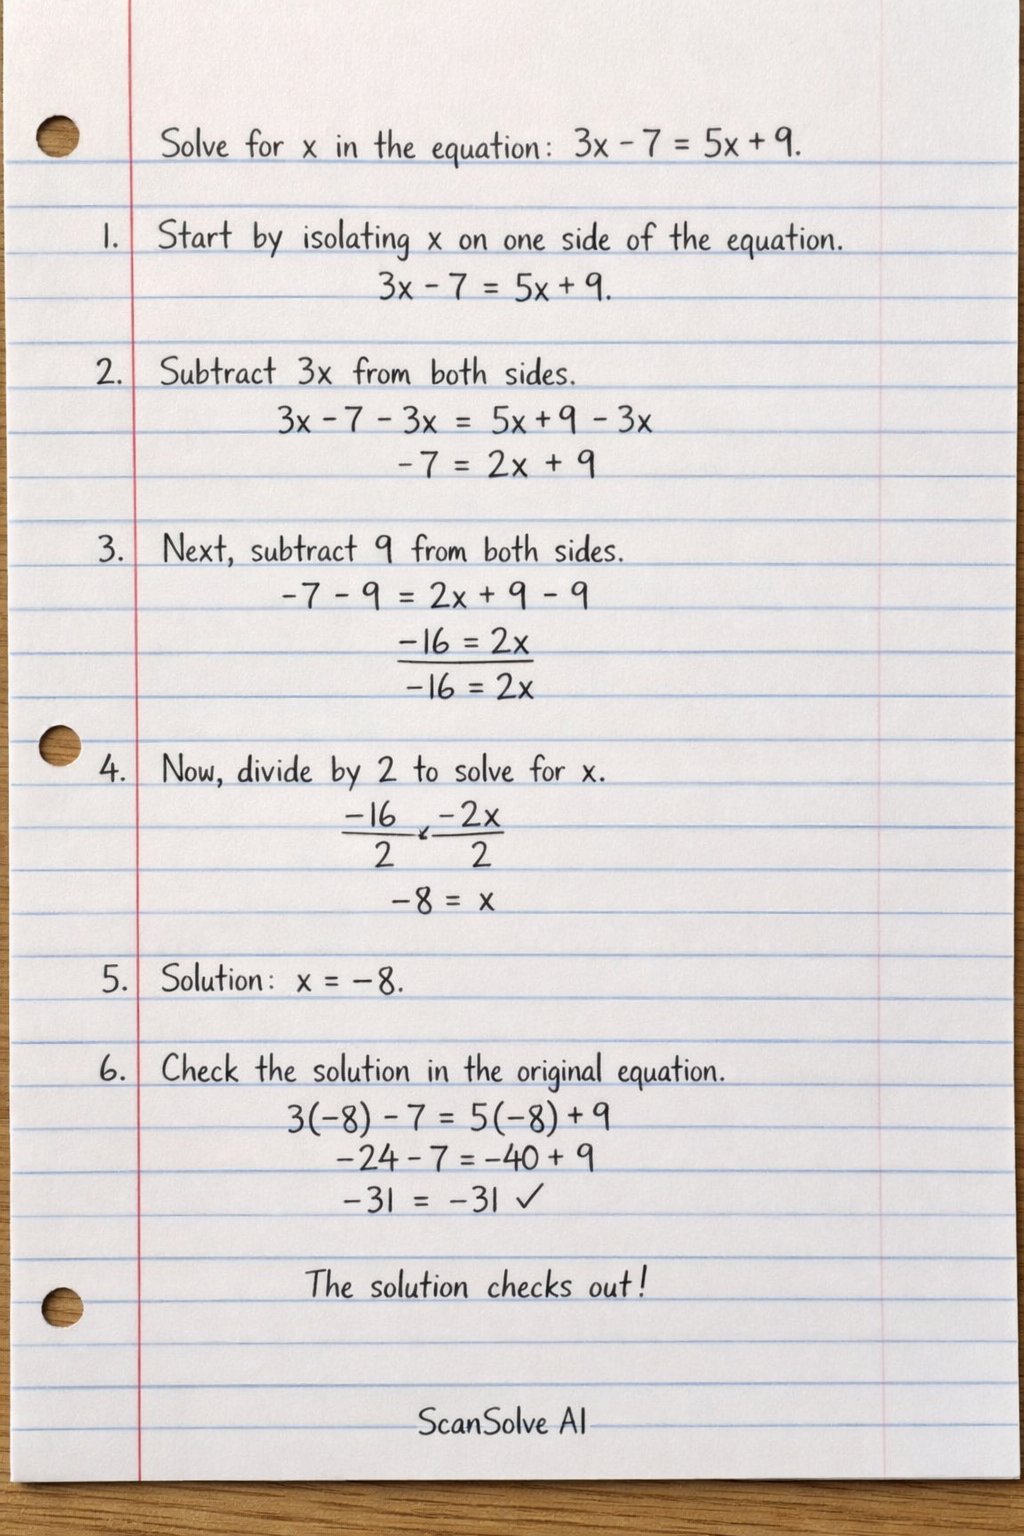 Solve for x in the equation: 3x - 7 = 5x + 9.
1. Start by isolating x on one side of the equation.
3x - 7 = 5x + 9.
2. Subtract 3x from both sides.
3x - 7 - 3x = 5x + 9 - 3x
-7 = 2x + 9
3. Next, subtract 9 from both sides.
-7 - 9 = 2x + 9 - 9
-16 = 2x
-16 = 2x
4. Now, divide by 2 to solve for x.
-16 -2x
2 2
-8 = x
5. Solution: x = -8.
6. Check the solution in the original equation.
3(-8) - 7 = 5(-8) + 9
-24 - 7 = -40 + 9
-31 = -31 ✓
The solution checks out!
ScanSolve AI